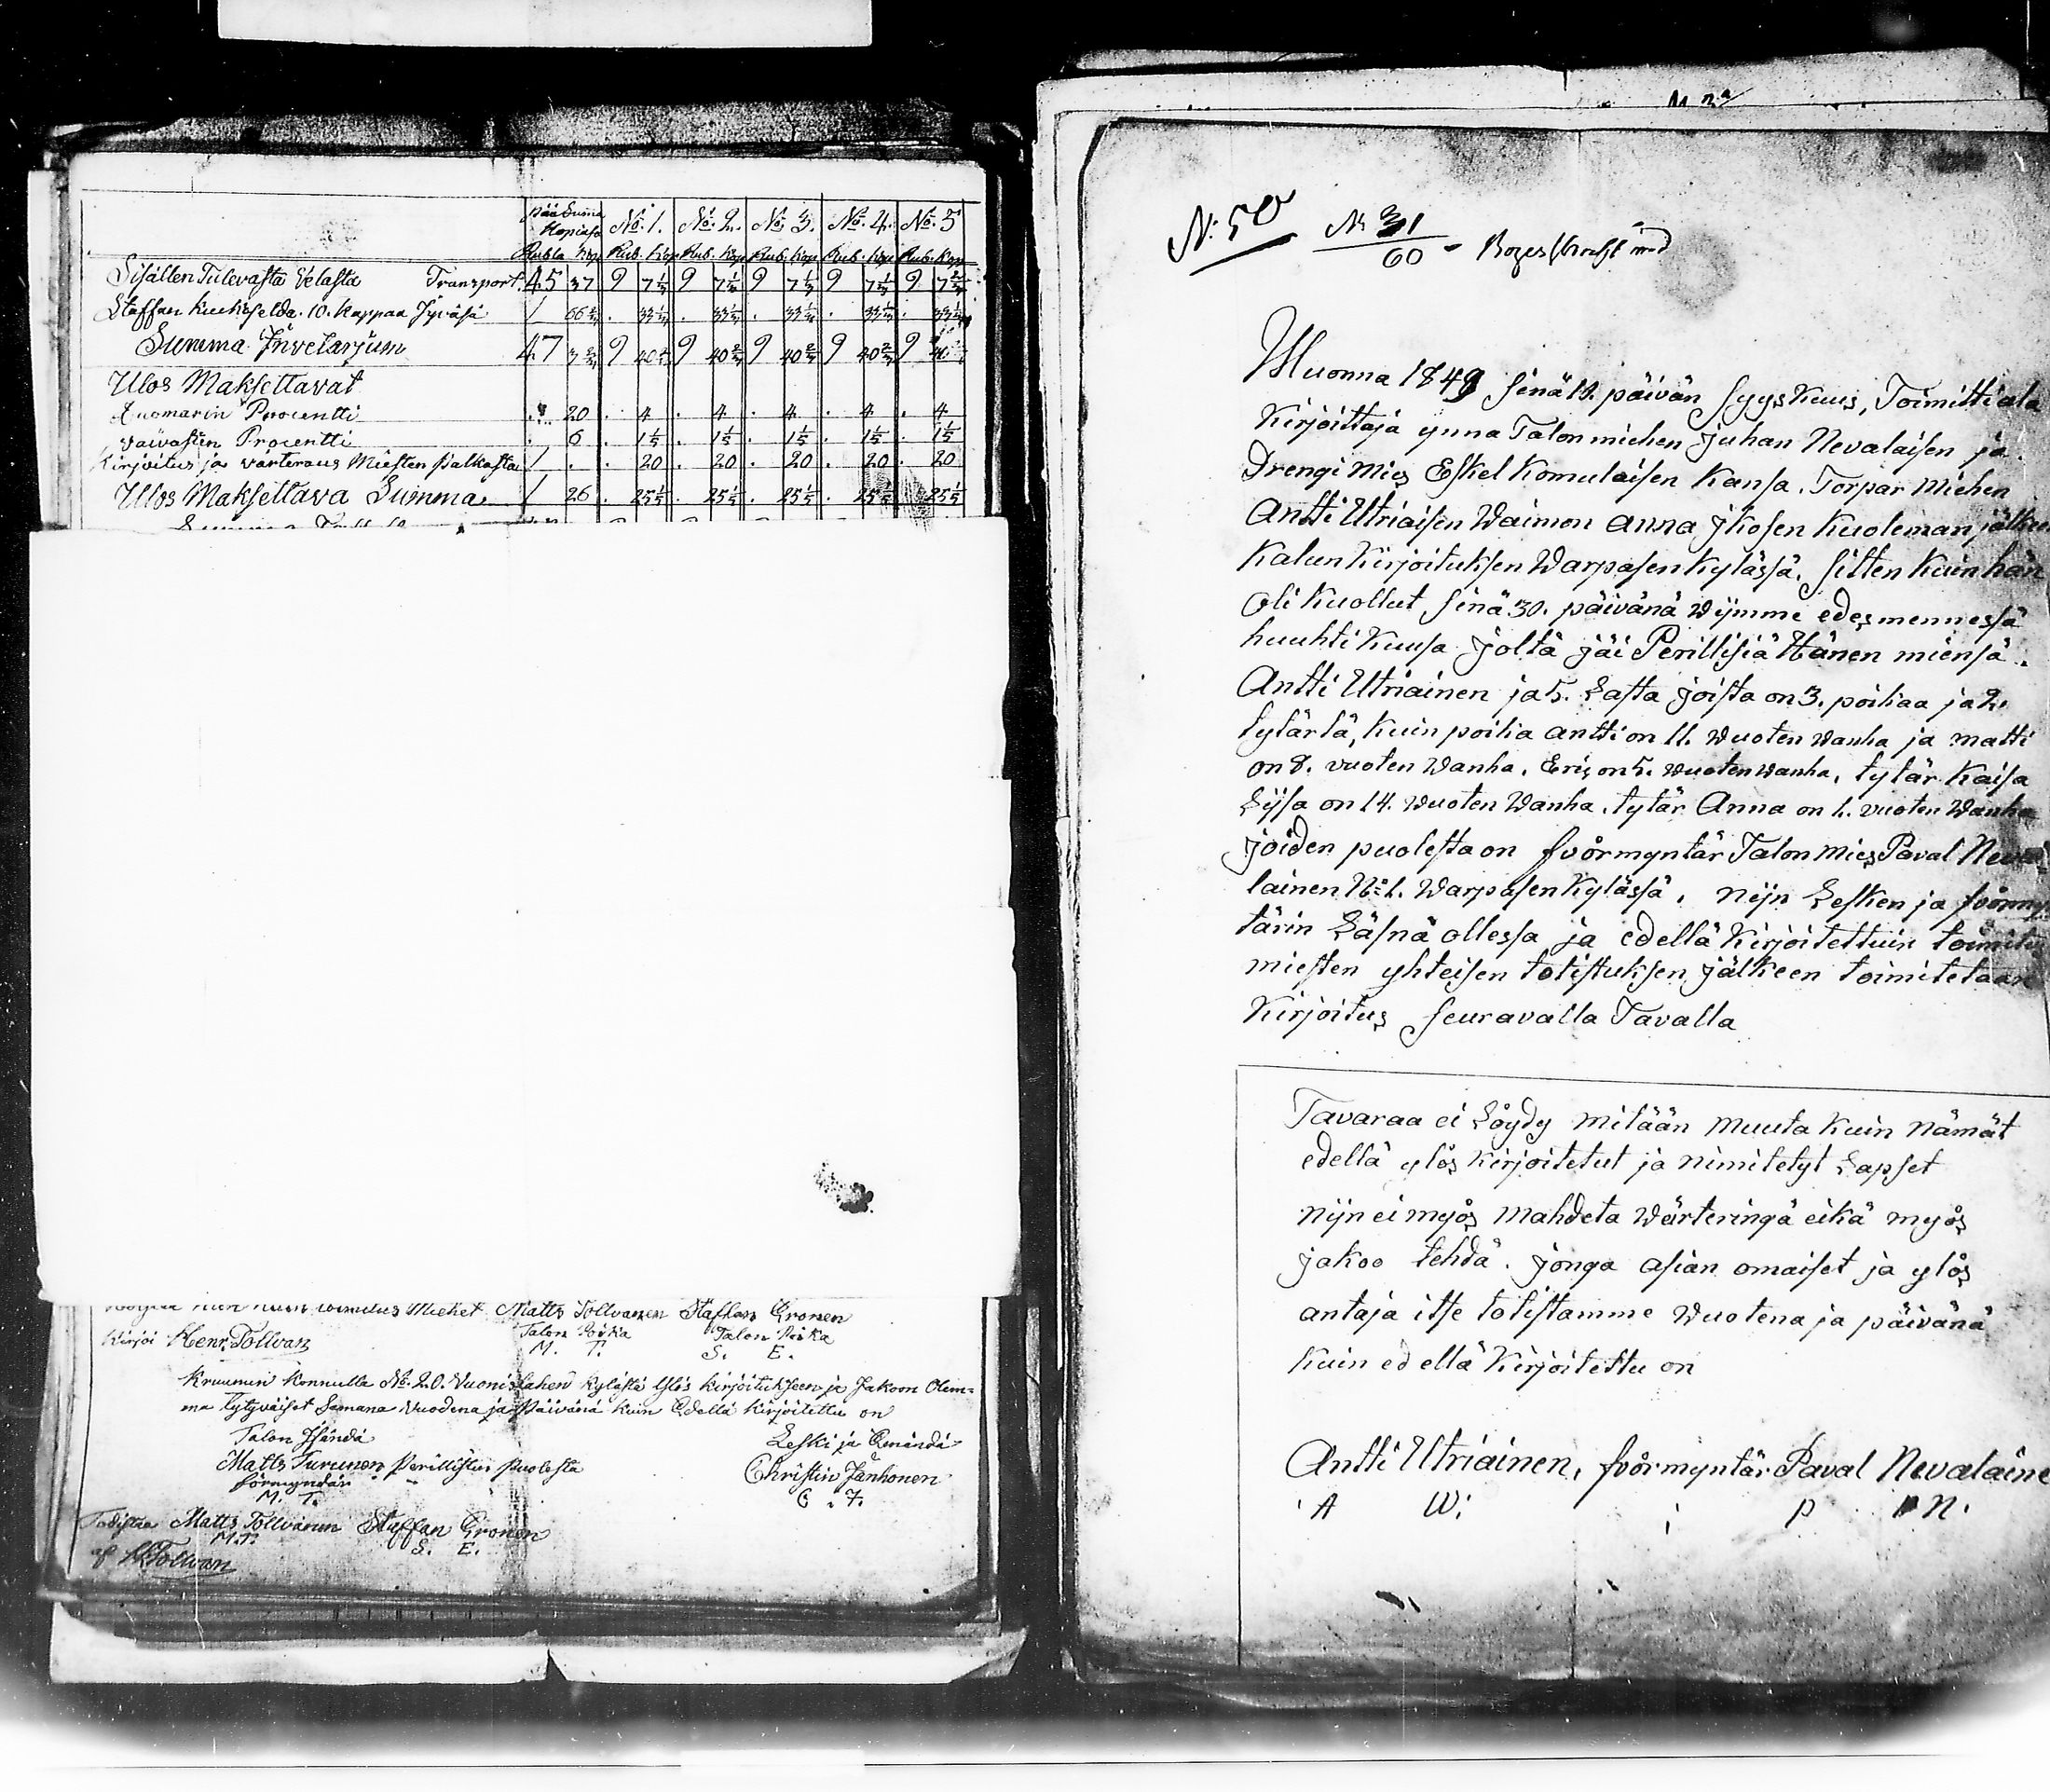 Pää Summa Kopiasa No. 1. No. 2. No. 3. No. 4. No. 5
Rubla Kop Rub. Kop Rub. Kop Rub. Kop Rub. Kop Rub. Kop
Sisällen Tulevasta Velasta Transport. 45 37 9 7 2/5 9 7 2/5 9 7 2/5 9 7 2/5 9 7 2/5
Staffan 10. Kappaa Jyväsä 1 66 . 33 . 33 . 33 . 33 . 33
Summa Invetarjum 47 3 9 40 9 40 9 40 9 40 9 40
Ulos Maksettavat
Duomarin Procentti . 20 . 4 . 4 . 4 . 4 . 4
vaivasten Procentti . 6 . 1 1/5 . 1 1/5 . 1 1/5 . 1 1/5 . 1 1/5
Kirjoitus ja värteraus Miesten Palkasta 1 . . 20 . 20 . 20 . 20 . 20
Ulos Maksettava Summa 1 26 . 25 1/5 . 25 1/5 . 25 1/5 . 25 1/5 . 25 1/5
toimitus Miehet Matts Tollvanen Staffan Eronen
Kirjoi Henr. Tollvan Talon Poika Talon Poika
M. T. S. E.
Kruunun Konnulla No. 20. Vuonislahen kylästä Ylös kirjoitukseen ja Jakoon Olem=
ma tytyväiset Samana Vuodena ja Päivänä kuin Edellä kirjoitettu on
Talon Isändä Leski ja Emändä
Matts Turunen Perillisten Puolesta Christin Jänhonen
förmyndäri
M. T. C. J.
Todistaa Matts Tollvanen Staffan Eronen
M.T. S. E.
af H Tollvan
N: 50 N: 31
60
Wuonna 1849 sinä 12. päivän syyskuus, Toimitti ala
Kirjoittaja ynna Talon miehen Juhan Nevalaisen ja
Drengi Mies Eskel Komulaisen Kansa. Torpar Miehen
Antti Utriaisen Waimon Anna Ikosen Kuoleman jälken
Kalun Kirjoituksen Warpasen Kylässä. sitten Kuin hän
oli Kuollut sinä 30. päivänä Wijmme edesmennessä
huuhti Kuusa joltä jäi Perillisiä Hänen miensä.
Antti Utriainen ja 5. Lasta joista on 3. poikaa ja 2.
tytärtä, Kuin poikia antti on 11. Wuoten Wanha ja matti
on 8. vuoten Wanha. Eris on 5. Wuoten Wanha, tytär Kaisa
Lijsa on 14. Wuoten Wanha. tytär Anna on 1. vuoten Wanha
joiden puolesta on fvörmyntär Talon Mies Paval Neva
lainen No 1. Warpasen Kylässä. Nijn Lesken ja fvörmyn
tärin Läsnä ollessa ja edellä Kirjoitettuin toimitus
miesten yhteisen totistuksen jälkeen toimitetaan
Kirjoitus seuravalla Tavalla
Tavaraa ei Löydy mitään Muuta Kuin Nämät
edellä ylös kirjoitetut ja Nimitetyt Lapset
Nijn ei myös Mahdeta Wärteringä eikä myös
jakoo tehdä. jonga asian omaiset ja ylös
antaja itse totistamme Wuotena ja päivänä
Kuin edellä Kirjoitettu on
Antti Utriainen, fvörmyntär Paval Nevalaine
A W: P N.